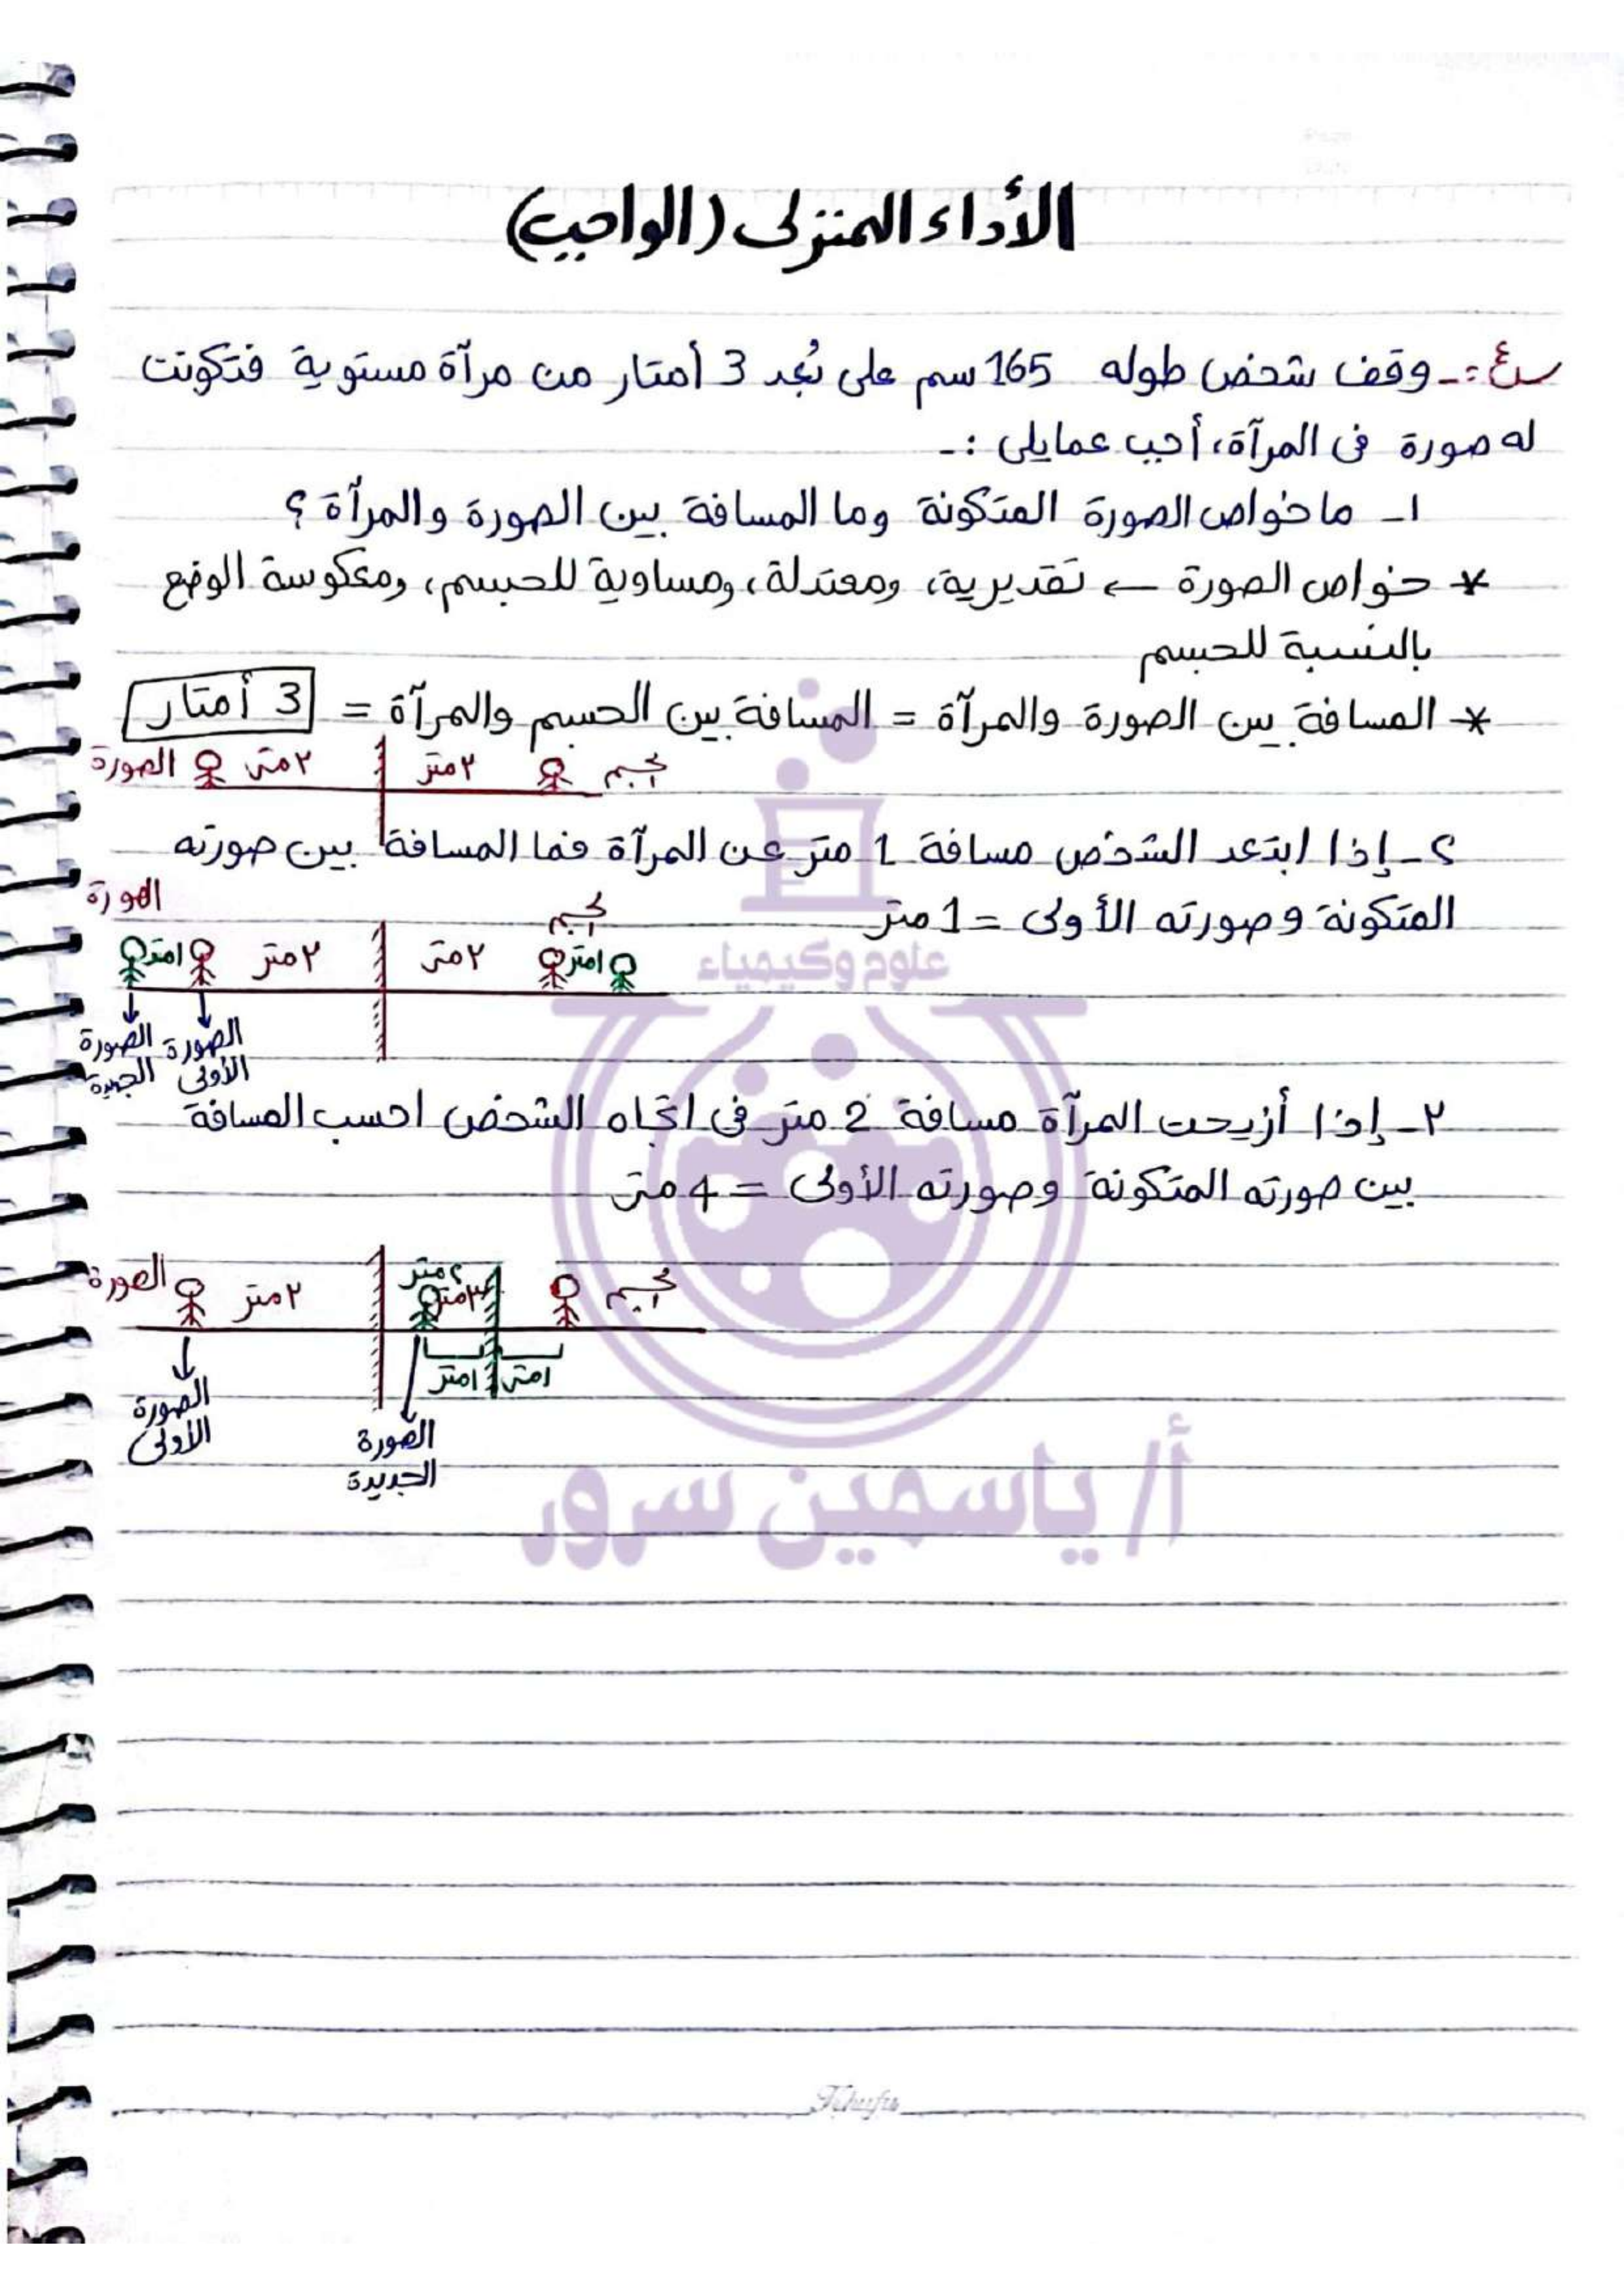 الأداء المنزلى (الواجب)
س٤:- وقف شخص طوله 165 سم على بُعد 3 أمتار من مرآة مستوية فتكونت
له صورة فى المرآة، أجب عمايلى :-
١- ما خواص الصورة المتكونة وما المسافة بين الصورة والمرآة ؟
* خواص الصورة ← تقديرية، ومعتدلة، ومساوية للجسم، ومعكوسة الوضع
بالنسبة للجسم
* المسافة بين الصورة والمرآة = المسافة بين الجسم والمرآة = 3 أمتار
جسم ٣متر ٣متر الصورة
٢- إذا ابتعد الشخص مسافة 1 متر عن المرآة فما المسافة بين صورته
المتكونة وصورته الأولى = 1 متر
جسم الصورة
١متر ٣متر ٣متر ١متر
الصورة الأولى
الصورة الجديدة
٣- إذا أزيحت المرآة مسافة 2 متر فى اتجاه الشخص احسب المسافة
بين صورته المتكونة وصورته الأولى = 4 متر
جسم ٢متر ٣متر ٣متر الصورة
١متر ١متر
الصورة الأولى
الصورة الجديدة
علوم وكيمياء
أ/ ياسمين سرور